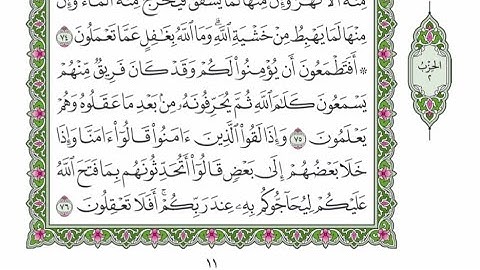 مِنْهُ ٱلْأَنْهَٰرُ وَإِنَّ مِنْهَا لَمَا يَشَّقَّقُ فَيَخْرُجُ مِنْهُ ٱلْمَآءُ وَإِنَّ
مِنْهَا لَمَا يَهْبِطُ مِنْ خَشْيَةِ ٱللَّهِۗ وَمَا ٱللَّهُ بِغَٰفِلٍ عَمَّا تَعْمَلُونَ ٧٤
* أَفَتَطْمَعُونَ أَن يُؤْمِنُوا۟ لَكُمْ وَقَدْ كَانَ فَرِيقٌ مِّنْهُمْ
يَسْمَعُونَ كَلَٰمَ ٱللَّهِ ثُمَّ يُحَرِّفُونَهُۥ مِنۢ بَعْدِ مَا عَقَلُوهُ وَهُمْ
يَعْلَمُونَ ٧٥ وَإِذَا لَقُوا۟ ٱلَّذِينَ ءَامَنُوا۟ قَالُوٓا۟ ءَامَنَّا وَإِذَا
خَلَا بَعْضُهُمْ إِلَىٰ بَعْضٍ قَالُوٓا۟ أَتُحَدِّثُونَهُم بِمَا فَتَحَ ٱللَّهُ
عَلَيْكُمْ لِيُحَآجُّوكُم بِهِۦ عِندَ رَبِّكُمْۚ أَفَلَا تَعْقِلُونَ ٧٦
الحزب
٢
١١